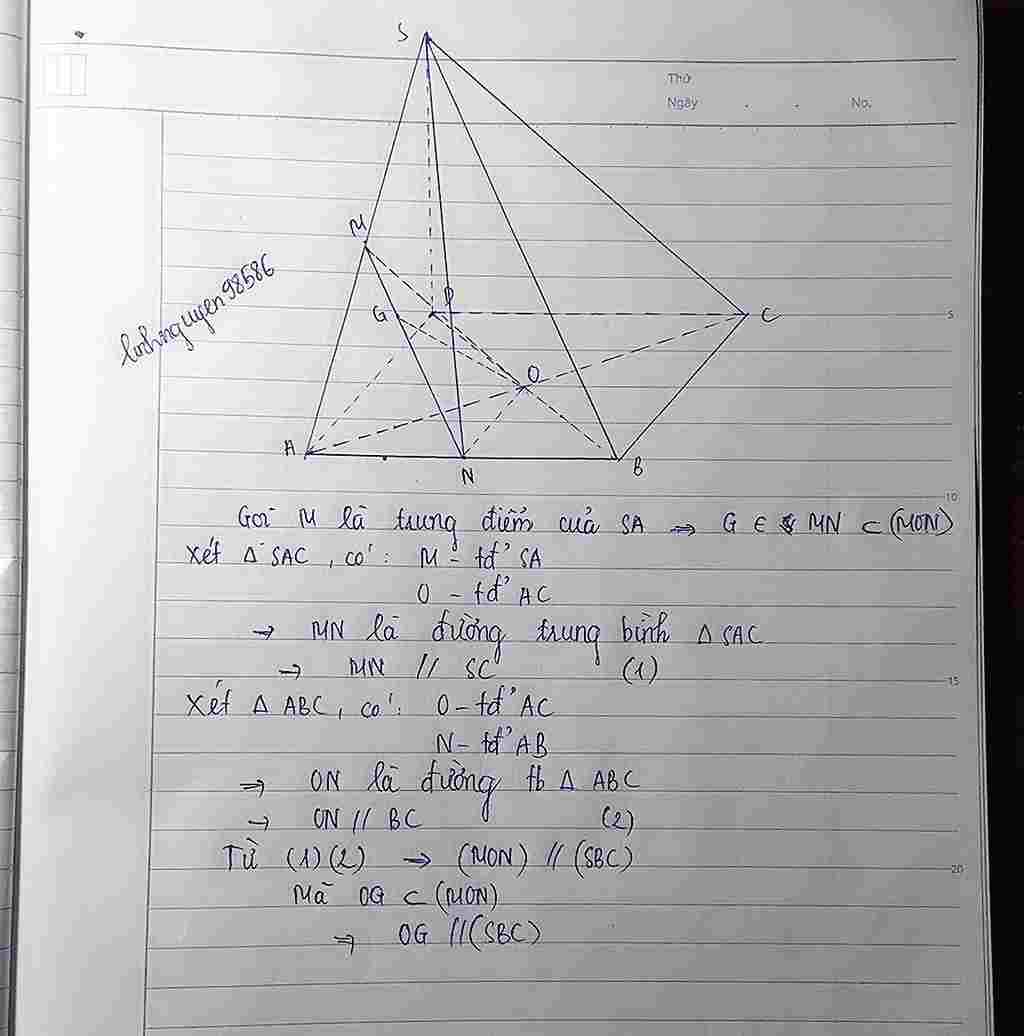 S
Thứ
Ngày . . No.
M
linhnguyen98586
G D C 5
O
A N B
10
Gọi M là trung điểm của SA → G ∈ MN ⊂ (MON)
Xét Δ SAC, có: M - tđ' SA
O - tđ' AC
→ MN là đường trung bình Δ SAC
→ MN // SC (1)
15
Xét Δ ABC, có: O - tđ' AC
N - tđ' AB
⇒ ON là đường tb Δ ABC
→ ON // BC (2)
Từ (1)(2) → (MON) // (SBC)
20
Mà OG ⊂ (MON)
⇒ OG // (SBC)